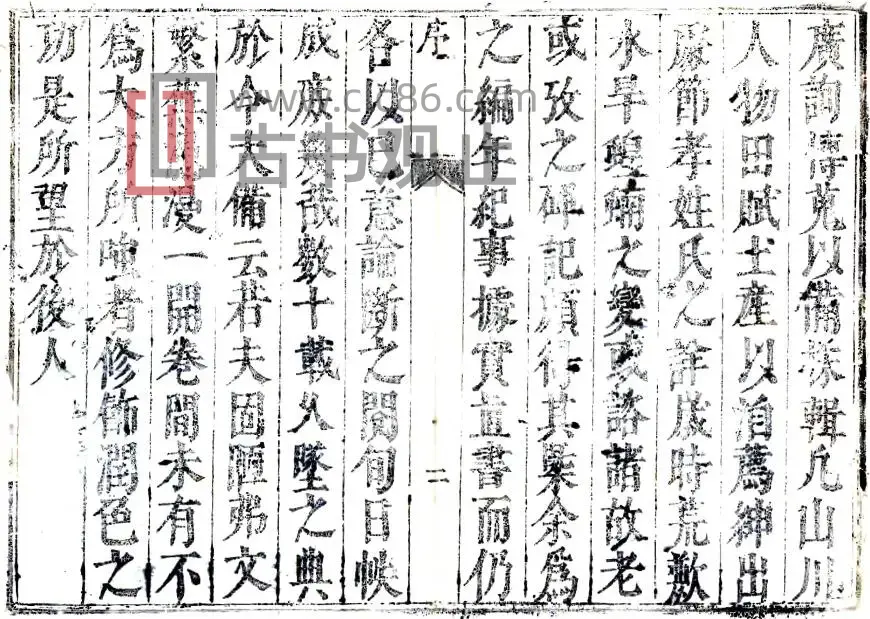 廣詢博克以備採輯凡山川
人物田賦土產以洎薦紳出
處節孝姓氏之詳歲時荒歉
水旱蝗蝻之變或諮諸故老
或攷之碑記頗得其槩余爲
之編年紀事據實直書而仍
序
二
各以已意論斷之閱旬日帙
成庶幾哉數十載久墜之典
於今大備云若夫固陋弗文
繁蕪漫一開卷間未有不
爲大方所嗤者修飾潤色之
功是所望於後人
www.cjc86.com
古书观止